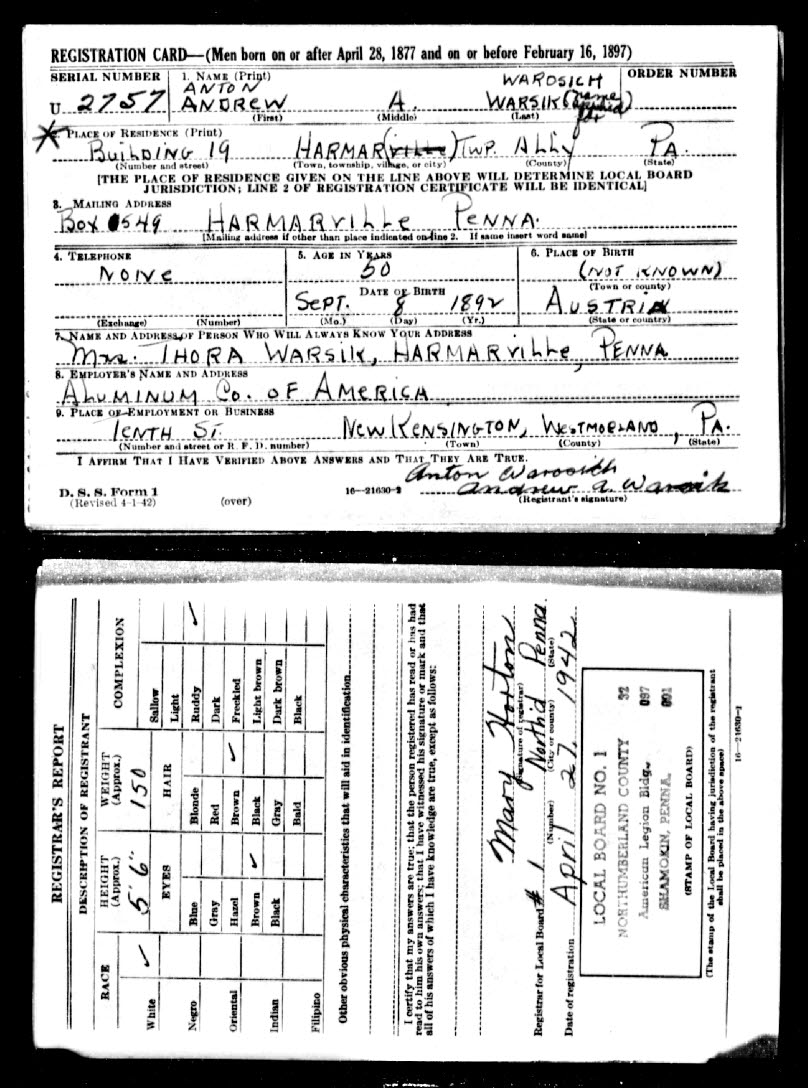 REGISTRATION CARD—(Men born on or after April 28, 1877 and on or before February 16, 1897)
SERIAL NUMBER 1. NAME (Print) WAROSICH ORDER NUMBER
ANTON
U 2757 ANDREW A. WARSIK (name
(First) (Middle) (Last)
2. PLACE OF RESIDENCE (Print)
BUILDING 19 HARMAR (VILLE) TWP. ALLY PA.
(Number and street) (Town, township, village, or city) (County) (State)
[THE PLACE OF RESIDENCE GIVEN ON THE LINE ABOVE WILL DETERMINE LOCAL BOARD
JURISDICTION; LINE 2 OF REGISTRATION CERTIFICATE WILL BE IDENTICAL]
3. MAILING ADDRESS
BOX 549 HARMARVILLE PENNA.
[Mailing address if other than place indicated on line 2. If same insert word same]
4. TELEPHONE 5. AGE IN YEARS 6. PLACE OF BIRTH
NONE 50 (NOT KNOWN)
DATE OF BIRTH (Town or county)
SEPT. 8 1892 AUSTRIA
(Exchange) (Number) (Mo.) (Day) (Yr.) (State or country)
7. NAME AND ADDRESS OF PERSON WHO WILL ALWAYS KNOW YOUR ADDRESS
Mrs. THORA WARSIK, HARMARVILLE, PENNA
8. EMPLOYER'S NAME AND ADDRESS
ALUMINUM CO. OF AMERICA
9. PLACE OF EMPLOYMENT OR BUSINESS
TENTH ST. NEW KENSINGTON, WESTMORLAND, PA.
(Number and street or R. F. D. number) (Town) (County) (State)
I AFFIRM THAT I HAVE VERIFIED ABOVE ANSWERS AND THAT THEY ARE TRUE.
Anton Warosich
D. S. S. Form 1 16—21630-2 Andrew A. Warsik
(Revised 4-1-42) (over) (Registrant's signature)
REGISTRAR'S REPORT
DESCRIPTION OF REGISTRANT
RACE HEIGHT (Approx.) WEIGHT (Approx.) COMPLEXION
White ✓ 5' 6" 150 Sallow
EYES HAIR Light
Negro Blue Blonde Ruddy ✓
Gray Red Dark
Oriental Hazel Brown ✓ Freckled
Brown ✓ Black Light brown
Indian Black Gray Dark brown
Bald Black
Filipino
Other obvious physical characteristics that will aid in identification
I certify that my answers are true; that the person registered has read or has had
read to him his own answers; that I have witnessed his signature or mark and that
all of his answers of which I have knowledge are true, except as follows:
Mary Horton
(Signature of registrar)
Registrar for Local Board # 1 North'd Penna.
(Number) (City or county) (State)
Date of registration April 27, 1942
LOCAL BOARD NO. 1
NORTHUMBERLAND COUNTY 32
American Legion Bldg. 097
SHAMOKIN, PENNA. 001
(STAMP OF LOCAL BOARD)
(The stamp of the Local Board having jurisdiction of the registrant
shall be placed in the above space)
16—21630-1